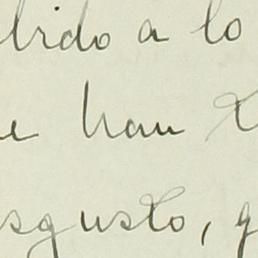 bido a lo
e han
sgusto, q